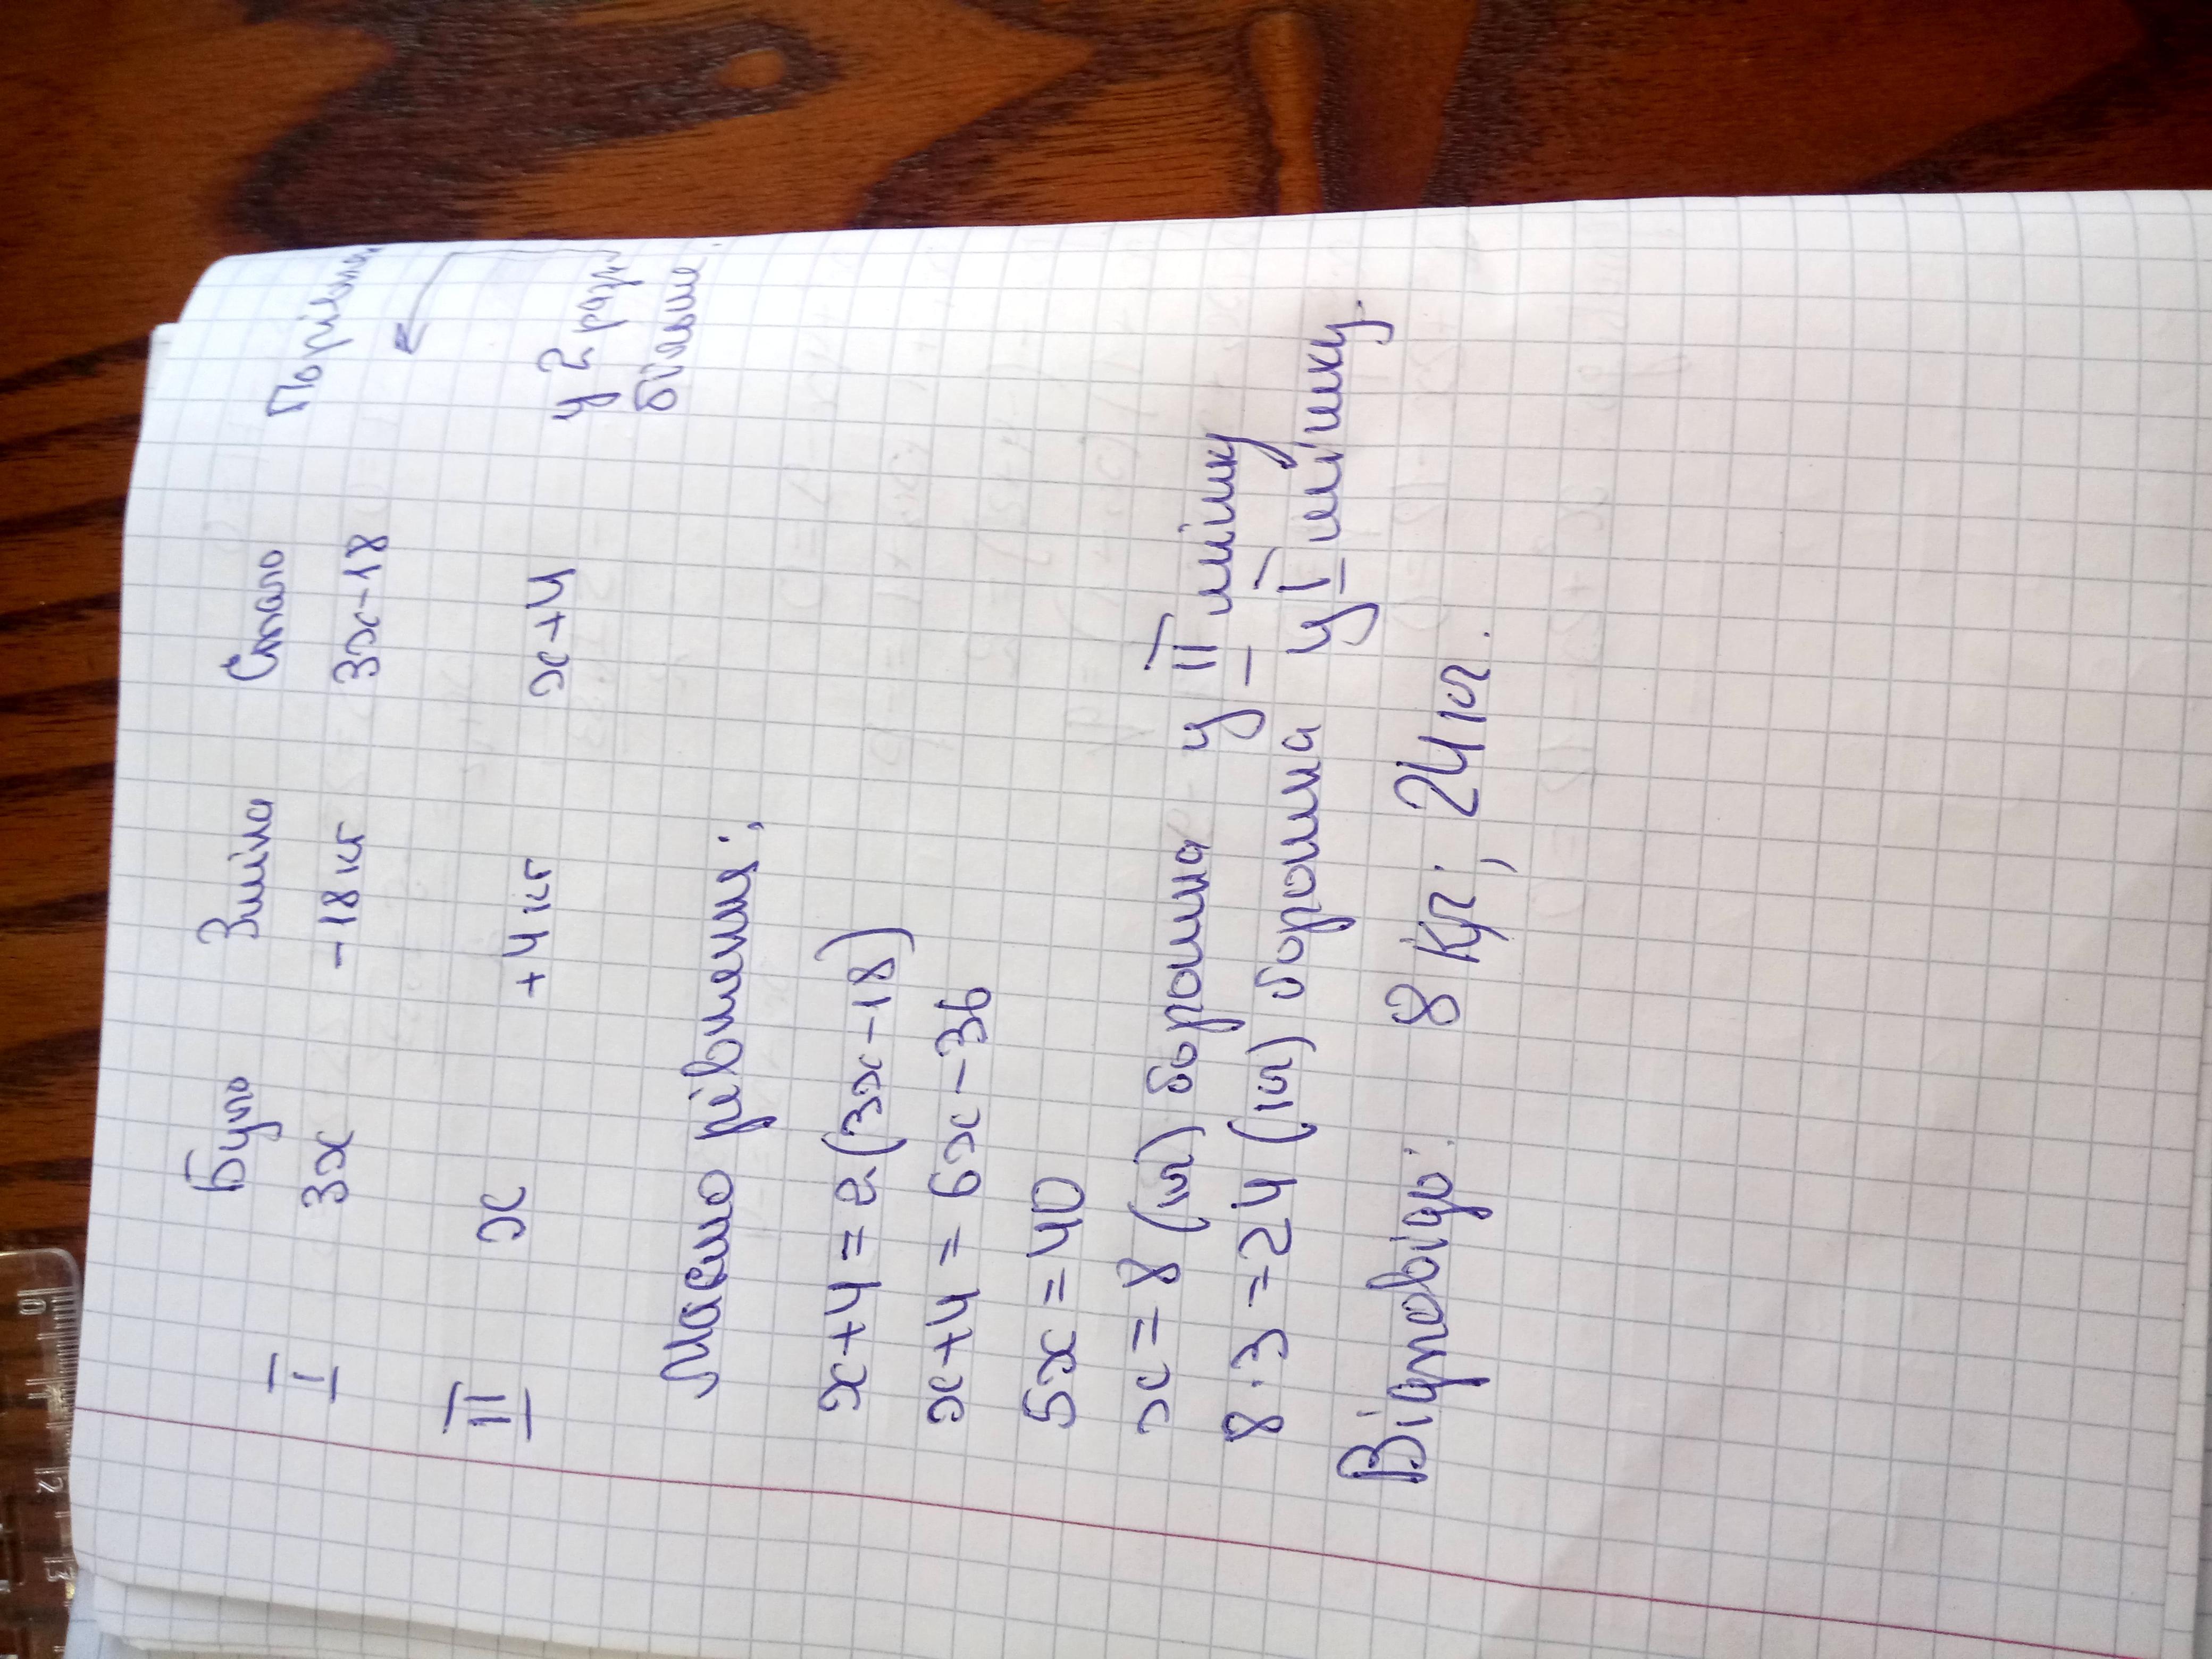 Було Зміна Стало Порівн.
I 3x -18 кг 3x-18
II x +4 кг x+4 у 2 рази
більше.
Маємо рівняння:
x+4=2(3x-18)
x+4=6x-36
5x=40
x=8 (кг) борошна - у II мішку
8·3=24 (кг) борошна у I мішку.
Відповідь: 8 кг; 24 кг.
10
1 2 3